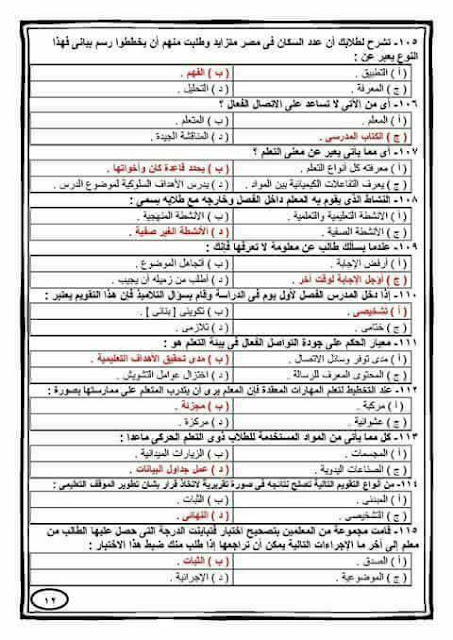 ١٠٥- تشرح لطلابك أن عدد السكان فى مصر متزايد وطلبت منهم أن يخططوا رسم بيانى فهذا
النوع يعبر عن :
( أ ) التطبيق . ( ب ) الفهم .
( ج ) المعرفة . ( د ) التحليل .
١٠٦- أى من الآتى لا تساعد على الاتصال الفعال ؟
( أ ) المعلم . ( ب ) المتعلم .
( ج ) الكتاب المدرسى . ( د ) المناقشة الجيدة .
١٠٧- أى مما يأتى يعبر عن معنى التعلم ؟
( أ ) معرفته كل أنواع التعلم . ( ب ) يحدد قاعدة كان وأخواتها .
( ج ) يعرف التفاعلات الكيميائية بين المواد . ( د ) يدرس الأهداف السلوكية لموضوع الدرس .
١٠٨- النشاط الذى يقوم به المعلم داخل الفصل وخارجه مع طلابه يسمى :
( أ ) الأنشطة التعليمية والتعلمية . ( ب ) الأنشطة المنهجية .
( ج ) الأنشطة الصفية . ( د ) الأنشطة الغير صفية .
١٠٩- عندما يسألك طالب عن معلومة لا تعرفها فإنك :
( أ ) أرفض الإجابة . ( ب ) أتجاهل الموضوع .
( ج ) أؤجل الإجابة لوقت آخر . ( د ) أطلب من زميله أن يجيب .
١١٠- إذا دخل المدرس الفصل لأول يوم فى الدراسة وقام بسؤال التلاميذ فإن هذا التقويم يعتبر :
( أ ) تشخيصى . ( ب ) تكوينى [ بنائى ] .
( ج ) ختامى . ( د ) تلازمى .
١١١- معيار الحكم على جودة التواصل الفعال فى بيئة التعلم هو :
( أ ) مدى توفر وسائل الاتصال . ( ب ) مدى تحقيق الأهداف التعليمية .
( ج ) المحتوى المعرف للرسالة . ( د ) اختزال عوامل التشويش .
١١٢- عند التخطيط لتعلم المهارات المعقدة فإن المعلم يرى أن يتدرب المتعلم على ممارستها بصورة :
( أ ) مركبة . ( ب ) مجزئة .
( ج ) عشوائية . ( د ) مركزة .
١١٣- كل مما يأتى من المواد المستخدمة للطلاب ذوى التعلم الحركى ماعدا :
( أ ) المجسمات . ( ب ) الزيارات الميدانية .
( ج ) الصناعات اليدوية . ( د ) عمل جداول البيانات .
١١٤- من أنواع التقويم التالية تصلح نتائجه فى صورة تقريرية لاتخاذ قرار بشأن تطوير الموقف التعليمى :
( أ ) المبدئى . ( ب ) الثبات .
( ج ) التشخيصى . ( د ) النهائى .
١١٥- قامت مجموعة من المعلمين بتصحيح اختبار فتباينت الدرجة التى حصل عليها الطالب من
معلم إلى آخر ما الإجراءات التالية يمكن أن تراجعها إذا طلب منك ضبط هذا الاختبار :
( أ ) الصدق . ( ب ) الثبات .
( ج ) الموضوعية . ( د ) الإجرائية .
١٢